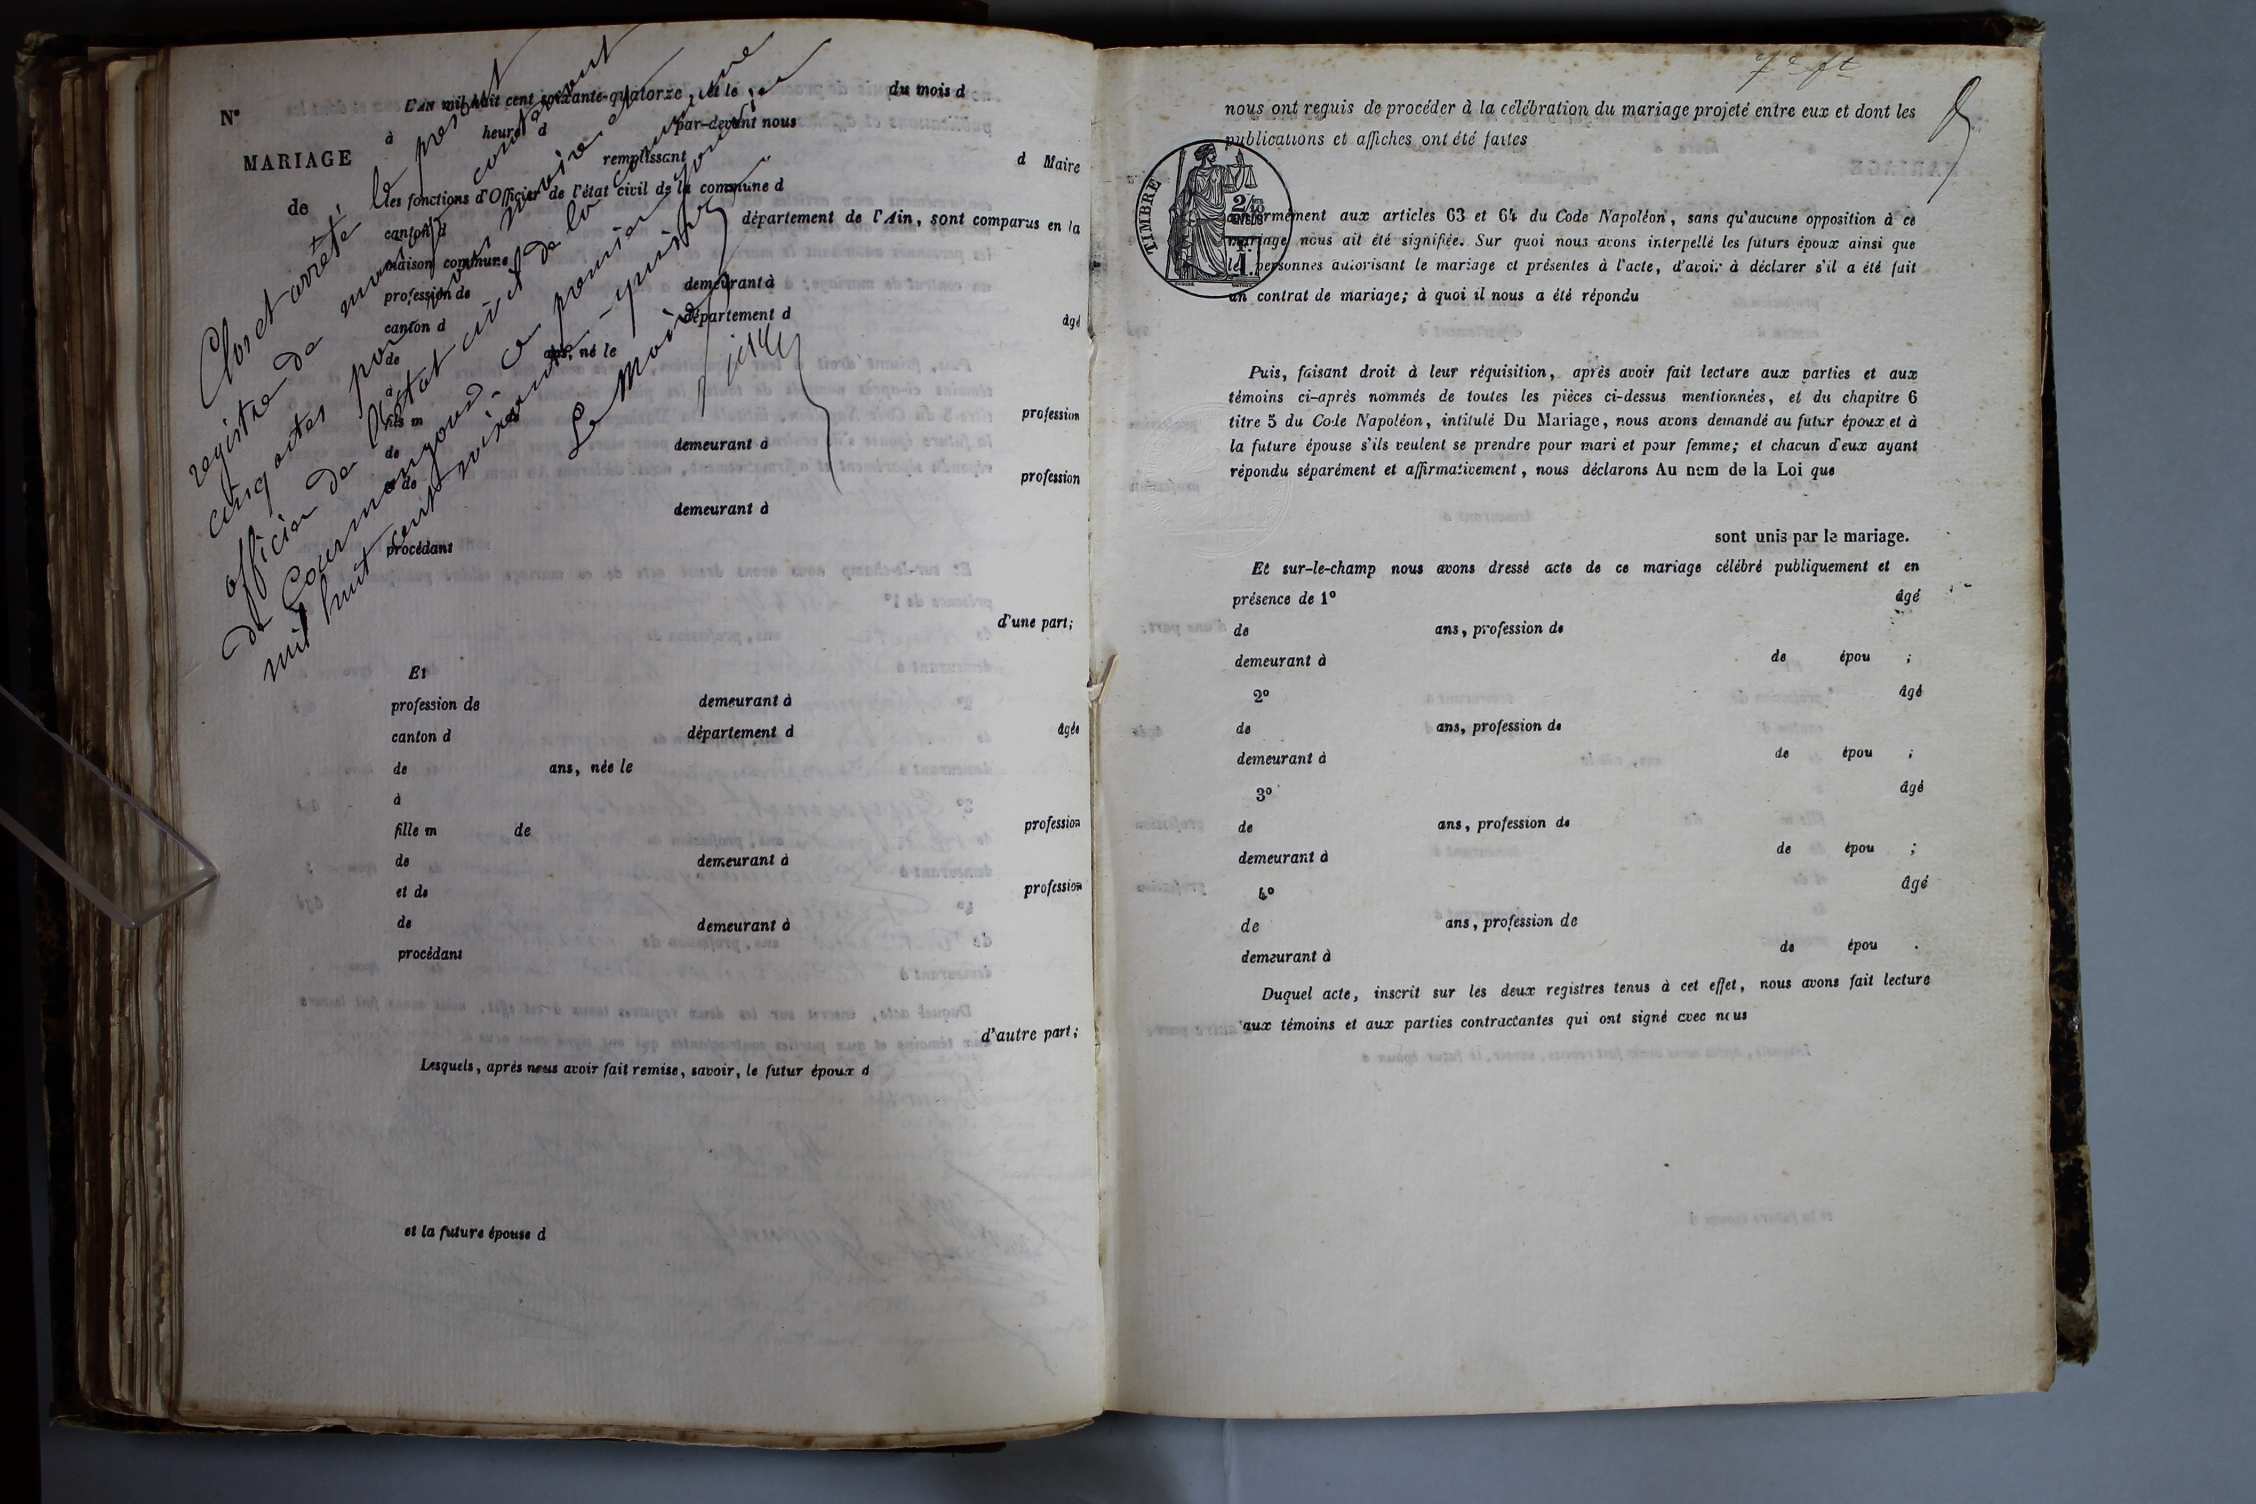 Clos et arrêté le présent
registre de mariage contenant
cinq actes par nous maire et
officier de l'état civil de la commune
de Courmangoux, ce premier janvier
mil huit cent soixante-quinze
Le Maire
N°
MARIAGE
de
L'AN mil huit cent soixante-quatorze, et le du mois d
à heure d par-devant nous
remplissant d Maire
les fonctions d'Officier de l'état civil de la commune d
canton d département de l'Ain, sont comparus en la
maison commune
profession de demeurant à
canton d département d âgé
de ans, né le
à
fils m de profession
de demeurant à
et de profession
demeurant à
procédant
d'une part;
Et
profession de demeurant à
canton d département d âgée
de ans, née le
à
fille m de profession
de demeurant à
et de profession
de demeurant à
procédant
d'autre part;
Lesquels, après nous avoir fait remise, savoir, le futur époux d
et la future épouse d
7e ft
nous ont requis de procéder à la célébration du mariage projeté entre eux et dont les
publications et affiches ont été faites
TIMBRE
conformément aux articles 63 et 64 du Code Napoléon, sans qu'aucune opposition à ce
mariage nous ait été signifiée. Sur quoi nous avons interpellé les futurs époux ainsi que
les personnes autorisant le mariage et présentes à l'acte, d'avoir à déclarer s'il a été fait
un contrat de mariage; à quoi il nous a été répondu
Puis, faisant droit à leur réquisition, après avoir fait lecture aux parties et aux
témoins ci-après nommés de toutes les pièces ci-dessus mentionnées, et du chapitre 6
titre 5 du Code Napoléon, intitulé Du Mariage, nous avons demandé au futur époux et à
la future épouse s'ils veulent se prendre pour mari et pour femme; et chacun d'eux ayant
répondu séparément et affirmativement, nous déclarons Au nom de la Loi que
sont unis par le mariage.
Et sur-le-champ nous avons dressé acte de ce mariage célébré publiquement et en
présence de 1° âgé
de ans, profession de
demeurant à de épou ;
2° âgé
de ans, profession de
demeurant à de épou ;
3° âgé
de ans, profession de
demeurant à de épou ;
4° âgé
de ans, profession de
demeurant à de épou .
Duquel acte, inscrit sur les deux registres tenus à cet effet, nous avons fait lecture
aux témoins et aux parties contractantes qui ont signé avec nous